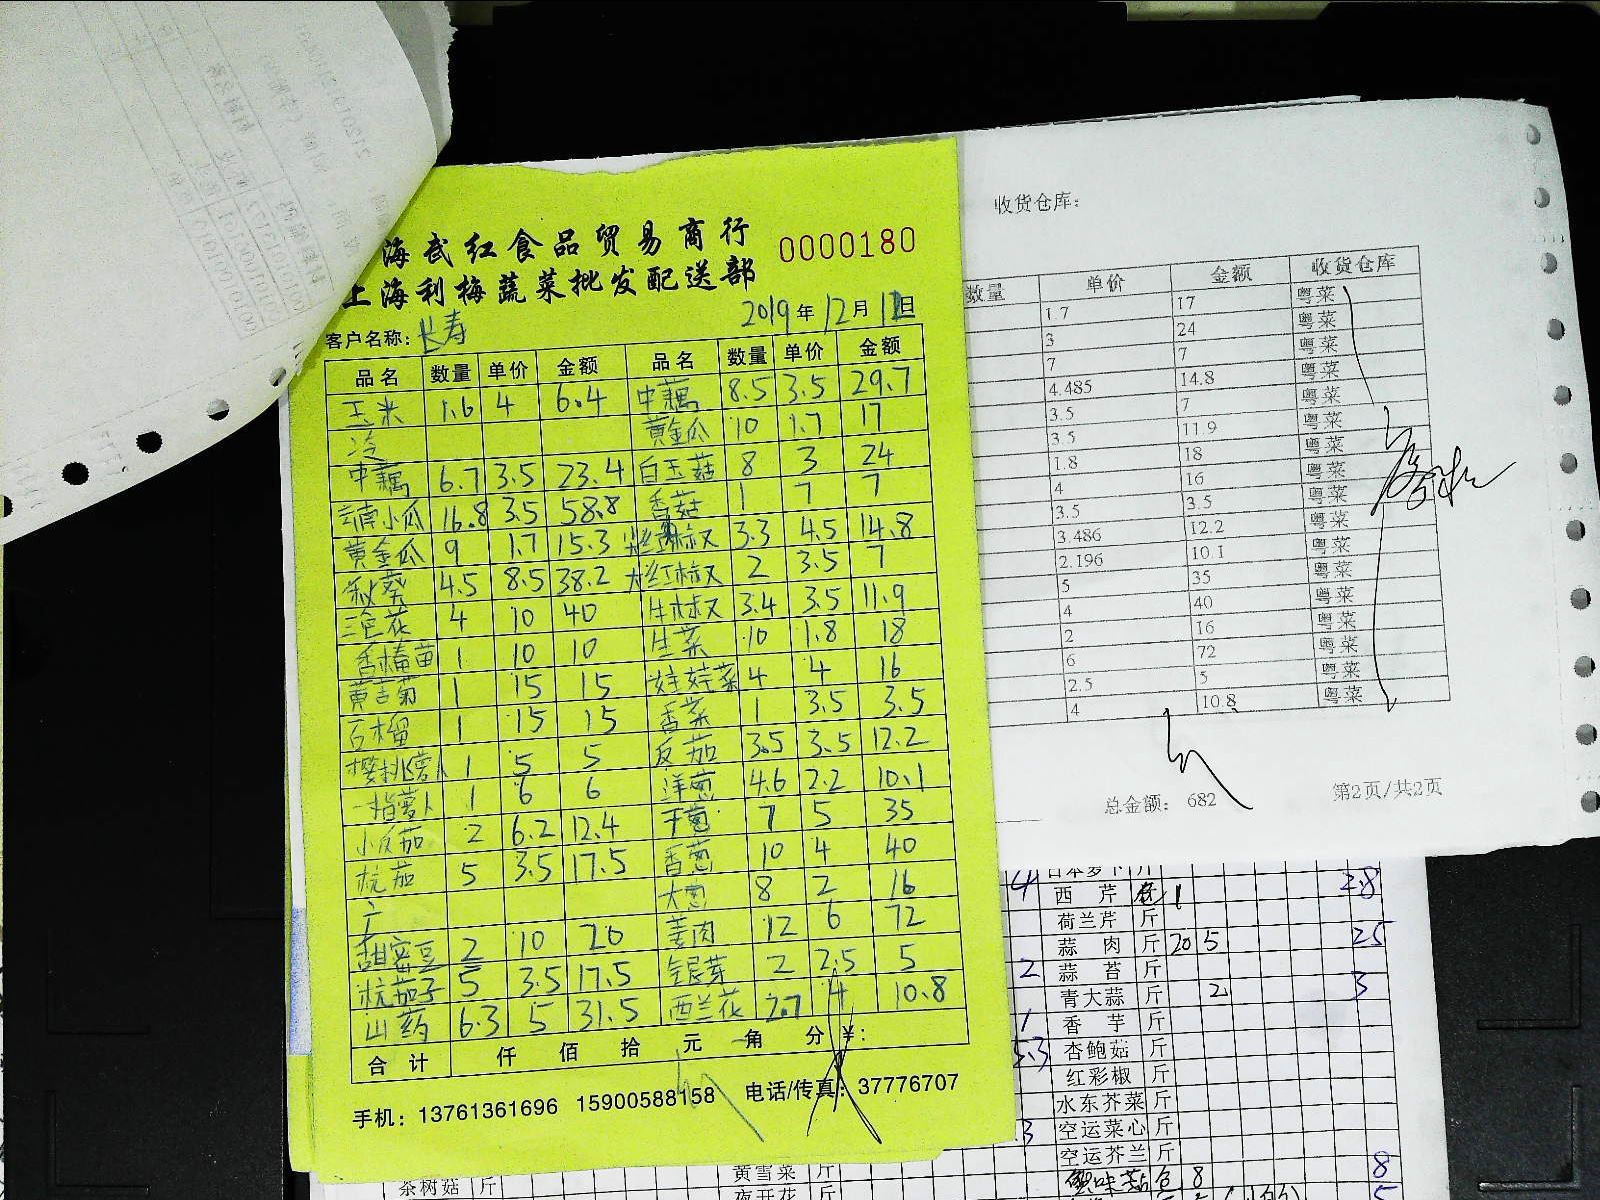 海武红食品贸易商行
上海利梅蔬菜批发配送部
0000180
2019年12月11日
客户名称：长寿
品名 数量 单价 金额 品名 数量 单价 金额
玉米 1.6 4 6.4 中藕 8.5 3.5 29.7
冷 黄金瓜 10 1.7 17
中藕 6.7 3.5 23.4 白玉菇 8 3 24
云南小瓜 16.8 3.5 58.8 香菇 1 7 7
黄金瓜 9 1.7 15.3 尖红椒 3.3 4.5 14.8
秋葵 4.5 8.5 38.2 大红椒 2 3.5 7
三色花 4 10 40 牛椒 3.4 3.5 11.9
香椿苗 1 10 10 生菜 10 1.8 18
黄言菊 1 15 15 娃娃菜 4 4 16
石榴 1 15 15 香菜 1 3.5 3.5
樱桃萝卜 1 5 5 反茄 3.5 3.5 12.2
一指萝卜 1 6 6 洋葱 4.6 2.2 10.1
小反茄 2 6.2 12.4 干葱 7 5 35
杭茄 5 3.5 17.5 香葱 10 4 40
广 大葱 8 2 16
甜蜜豆 2 10 20 姜肉 12 6 72
杭茄子 5 3.5 17.5 银芽 2 2.5 5
山药 6.3 5 31.5 西兰花 2.7 4 10.8
合计 仟 佰 拾 元 角 分 ¥：
手机：13761361696 15900588158 电话/传真：37776707
收货仓库：
数量 单价 金额 收货仓库
1.7 17 粤菜
3 24 粤菜
7 7 粤菜
4.485 14.8 粤菜
3.5 7 粤菜
3.5 11.9 粤菜
1.8 18 粤菜
4 16 粤菜
3.5 3.5 粤菜
3.486 12.2 粤菜
2.196 10.1 粤菜
5 35 粤菜
4 40 粤菜
2 16 粤菜
6 72 粤菜
2.5 5 粤菜
4 10.8 粤菜
总金额： 682
第2页/共2页
4 日本萝卜 斤
西芹 1 2.8
荷兰芹 斤
蒜肉 斤 20 5 25
2 蒜苔 斤
青大蒜 斤 2 3
1 香芋 斤
5.3 杏鲍菇 斤
红彩椒 斤
水东芥菜 斤
3 空运菜心 斤
空运芥兰 斤
8 8
黄雪菜 斤
茶树菇 斤
夜开花 斤